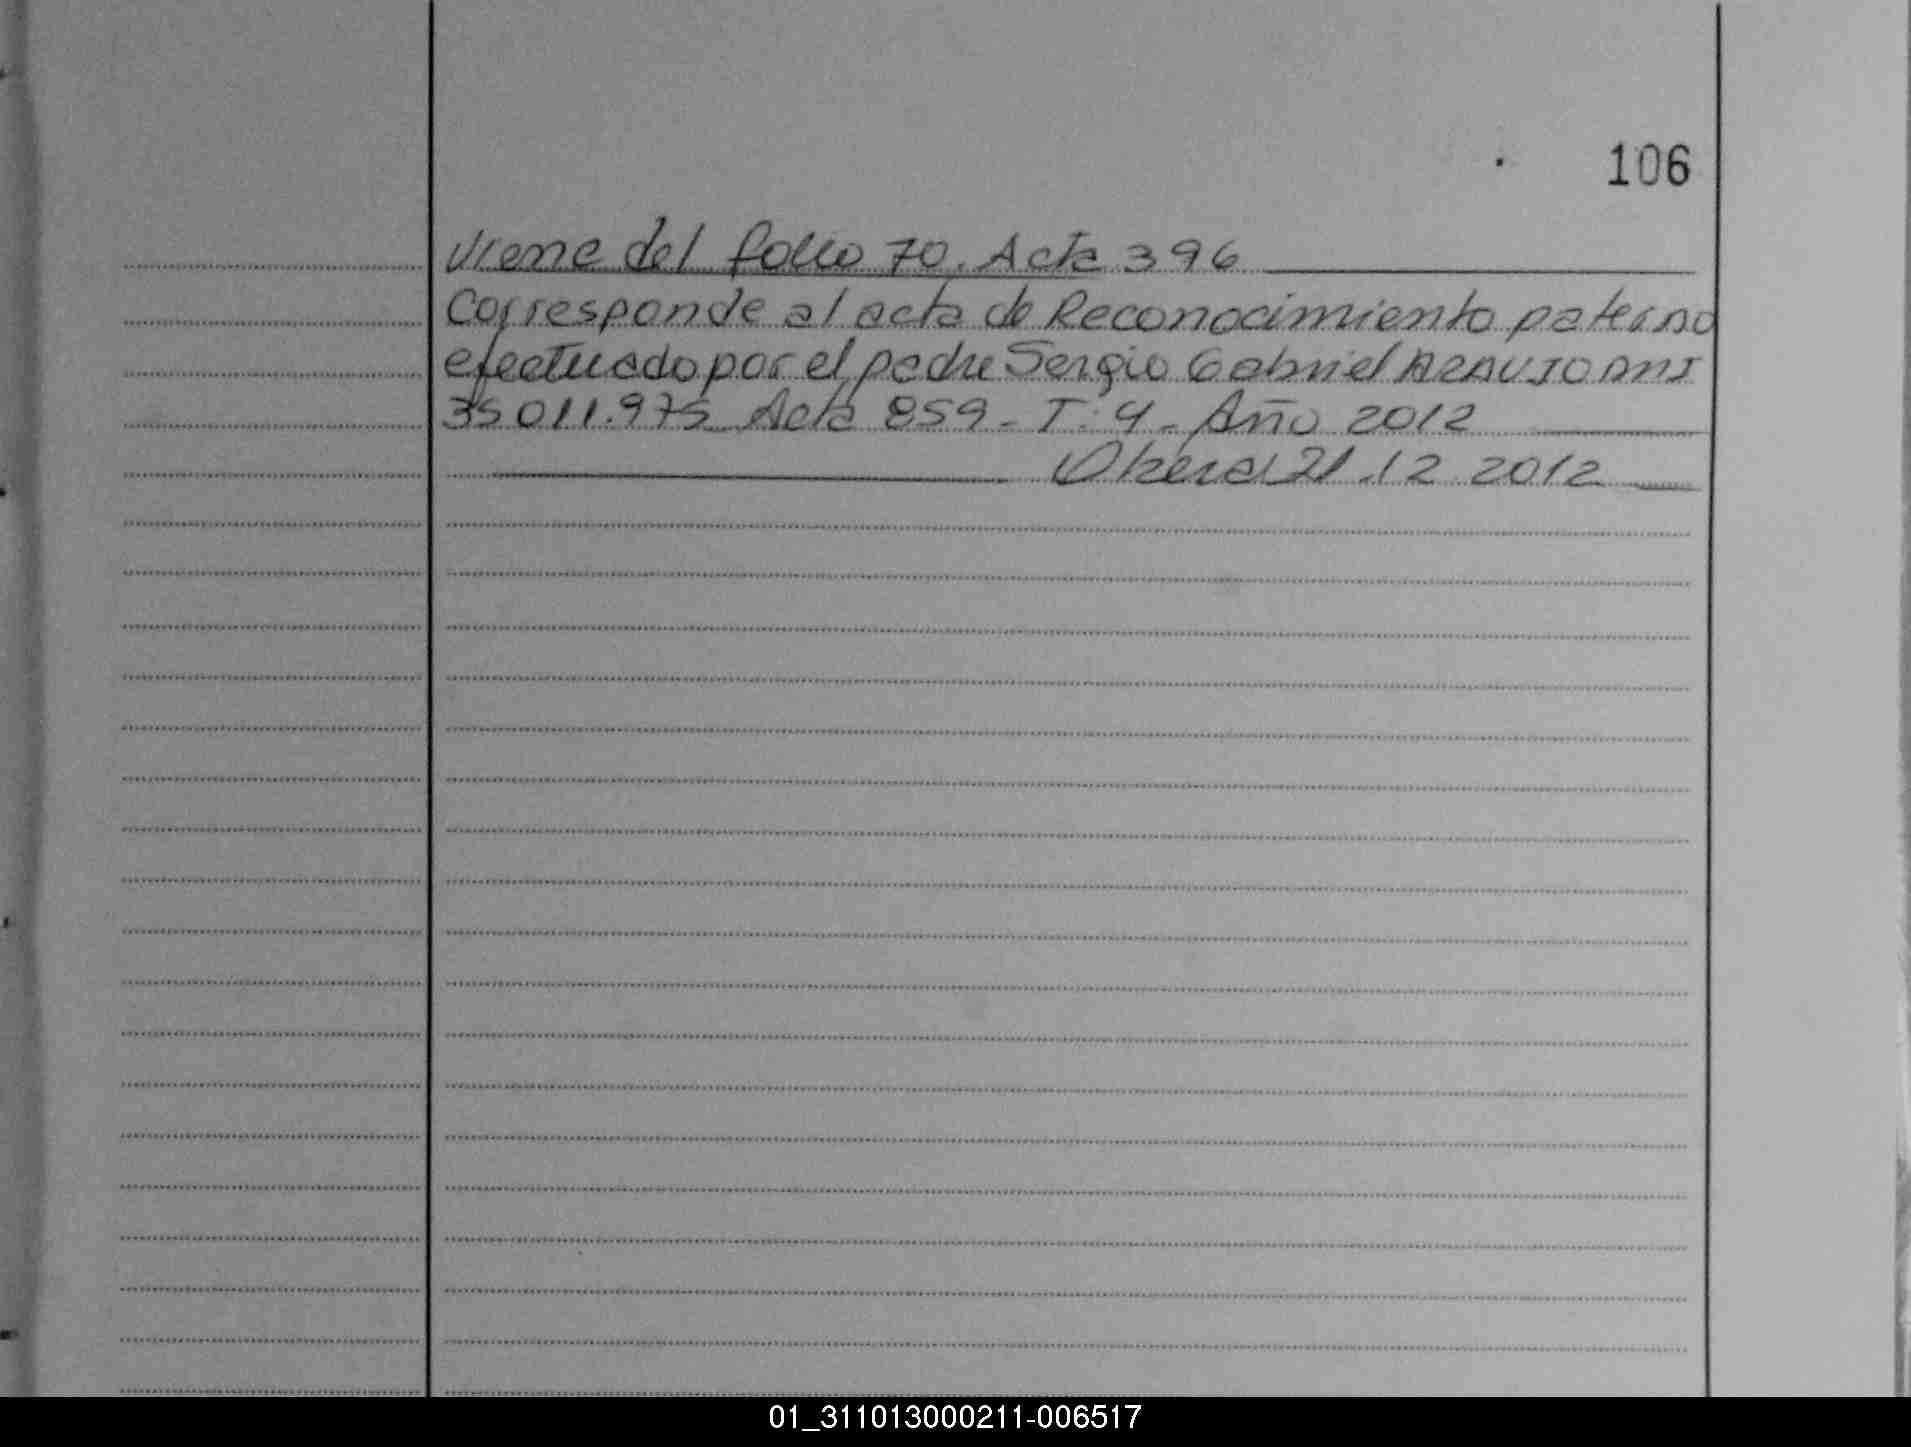 106
Viene del folio 70. Acta 396
Corresponde al acta de Reconocimiento paterno
efectuado por el padre Sergio Gabriel ARAUJO DNI
35011.975 Acta 859 - T: 4 - Año 2012
Obera 21.12.2012
01_311013000211-006517